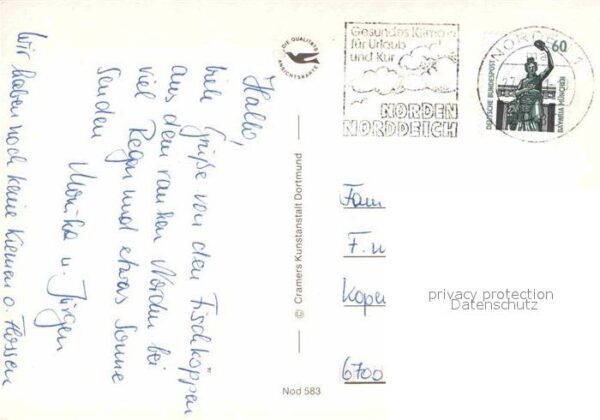 Hallo!
Viele Grüße von den Fischköppen
aus dem rauhen Norden bei
viel Regen und etwas Sonne
senden
Monika u. Jürgen
Wir haben noch keine Kiemen o. Flossen
DIE QUALITÄTS
ANSICHTSKARTE
© Cramers Kunstanstalt Dortmund
Nod 583
Gesundes Klima
für Urlaub
und Kur
NORDEN
NORDDEICH
NORDEN 1
60
DEUTSCHE BUNDESPOST
BAVARIA MÜNCHEN
Fam
F. u
Kope
6700
privacy protection
Datenschutz